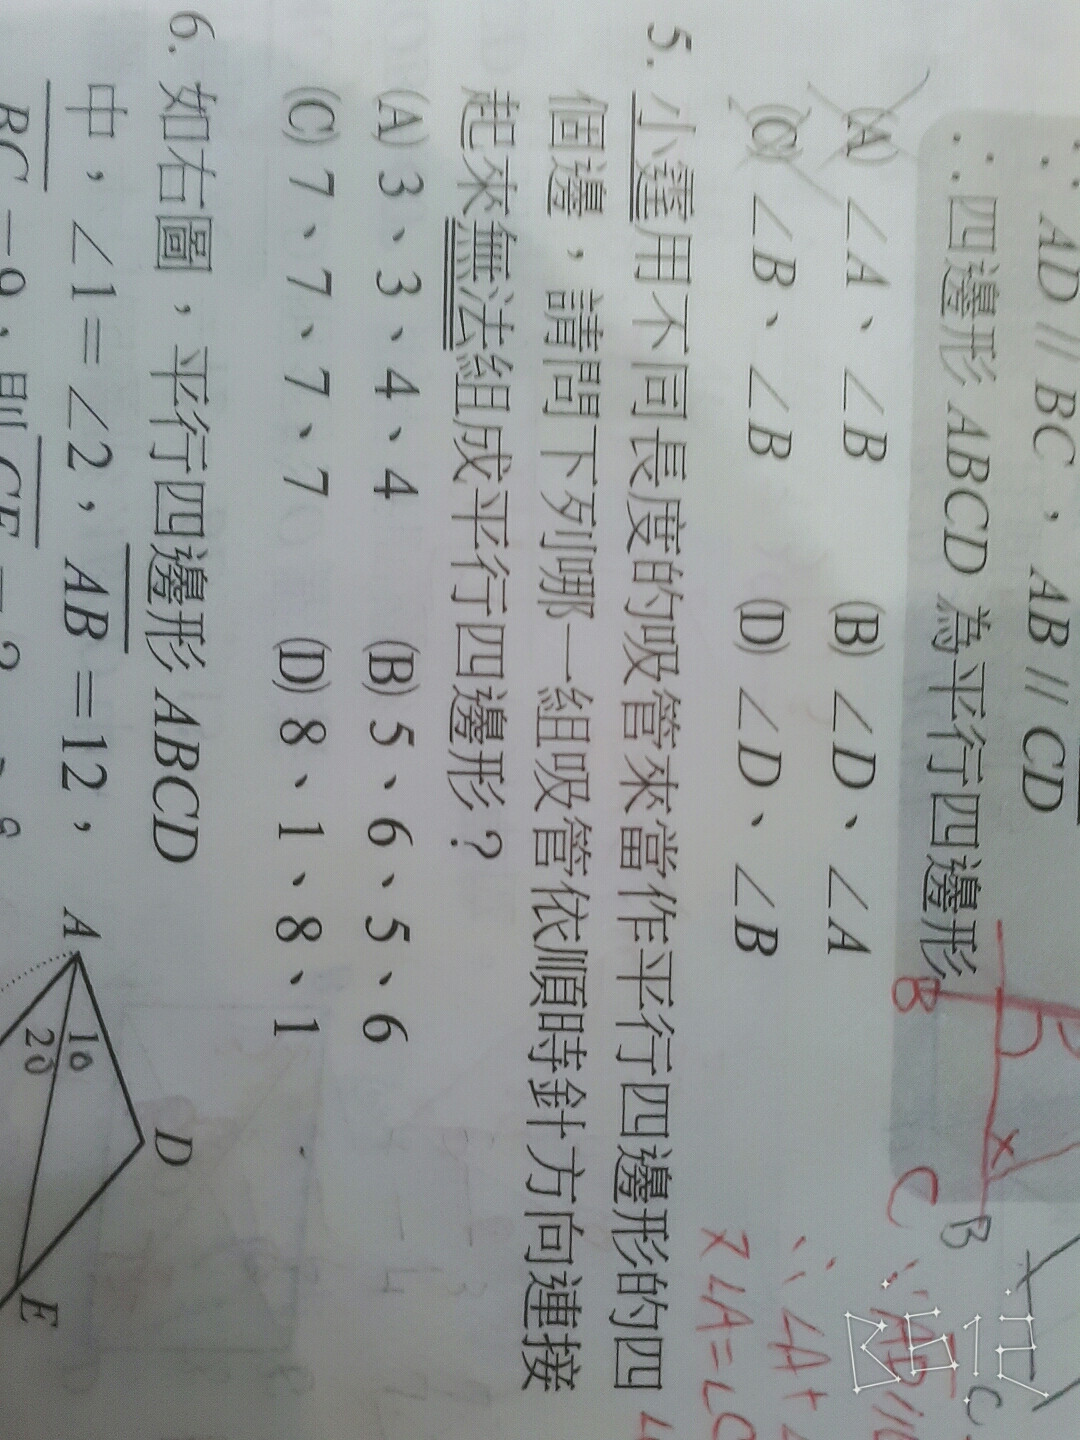 ∴ AD // BC，AB // CD
∴四邊形 ABCD 為平行四邊形
(A) ∠A、∠B (B) ∠D、∠A
(C) ∠B、∠B (D) ∠D、∠B
5. 小霆用不同長度的吸管來當作平行四邊形的四
個邊，請問下列哪一組吸管依順時針方向連接
起來無法組成平行四邊形？
(A) 3、3、4、4 (B) 5、6、5、6
(C) 7、7、7、7 (D) 8、1、8、1
6. 如右圖，平行四邊形 ABCD
中，∠1=∠2，AB=12，
BC=9，則CE=?
A
D
1
2
E
B
C
B
C
∠A=∠C
∴∠A+